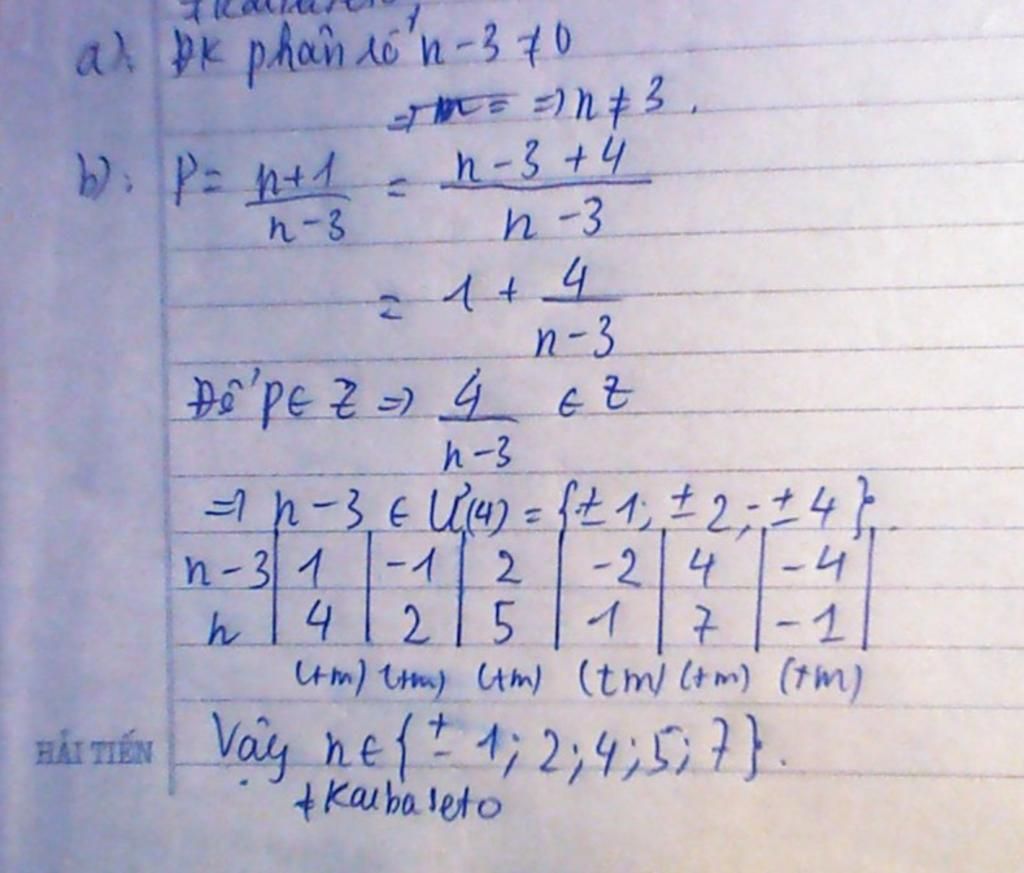 a). ĐK phân số n - 3 ≠ 0
⇒ n ≠ 3.
b): P = \frac{n+1}{n-3} = \frac{n-3+4}{n-3}
= 1 + \frac{4}{n-3}
Để P ∈ Z ⇒ \frac{4}{n-3} ∈ Z
⇒ n - 3 ∈ Ư(4) = {± 1; ± 2; ± 4}.
n - 3 | 1 | -1 | 2 | -2 | 4 | -4 |
n | 4 | 2 | 5 | 1 | 7 | -1 |
(tm) (tm) (tm) (tm) (tm) (tm)
HẢI TIẾN
Vậy n ∈ {± 1; 2; 4; 5; 7}.
+Kaibaseto